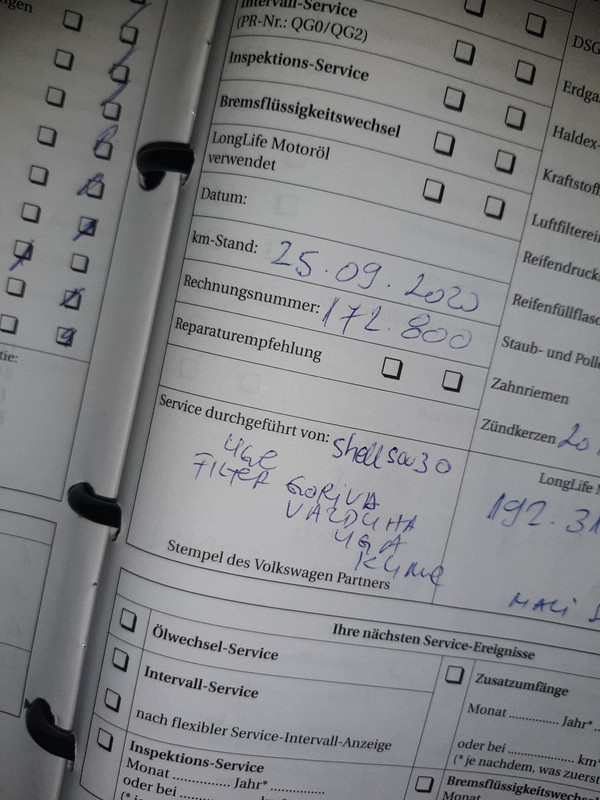 Intervall-Service
(PR-Nr.: QG0/QG2)
Inspektions-Service
Bremsflüssigkeitswechsel
LongLife Motoröl
verwendet
Datum:
km-Stand: 25.09.2020
Rechnungsnummer: 172.800
Reparaturempfehlung
Service durchgeführt von: Shell 5w30
ULJE
FILTER GORIVA
VAZDUHA
ULJA
KLIME
Stempel des Volkswagen Partners
DSG
Erdga
Haldex-
Kraftstoff
Luftfilterein
Reifendruck
Reifenfüllflasc
Staub- und Polle
Zahnriemen
Zündkerzen 20
LongLife M
192.31
MALI
Ihre nächsten Service-Ereignisse
Ölwechsel-Service
Intervall-Service
nach flexibler Service-Intervall-Anzeige
Inspektions-Service
Monat .......... Jahr* ..........
oder bei .......... km*
Zusatzumfänge
Monat .......... Jahr*
oder bei .......... km*
(* je nachdem, was zuerst
Bremsflüssigkeitswechs
Monat